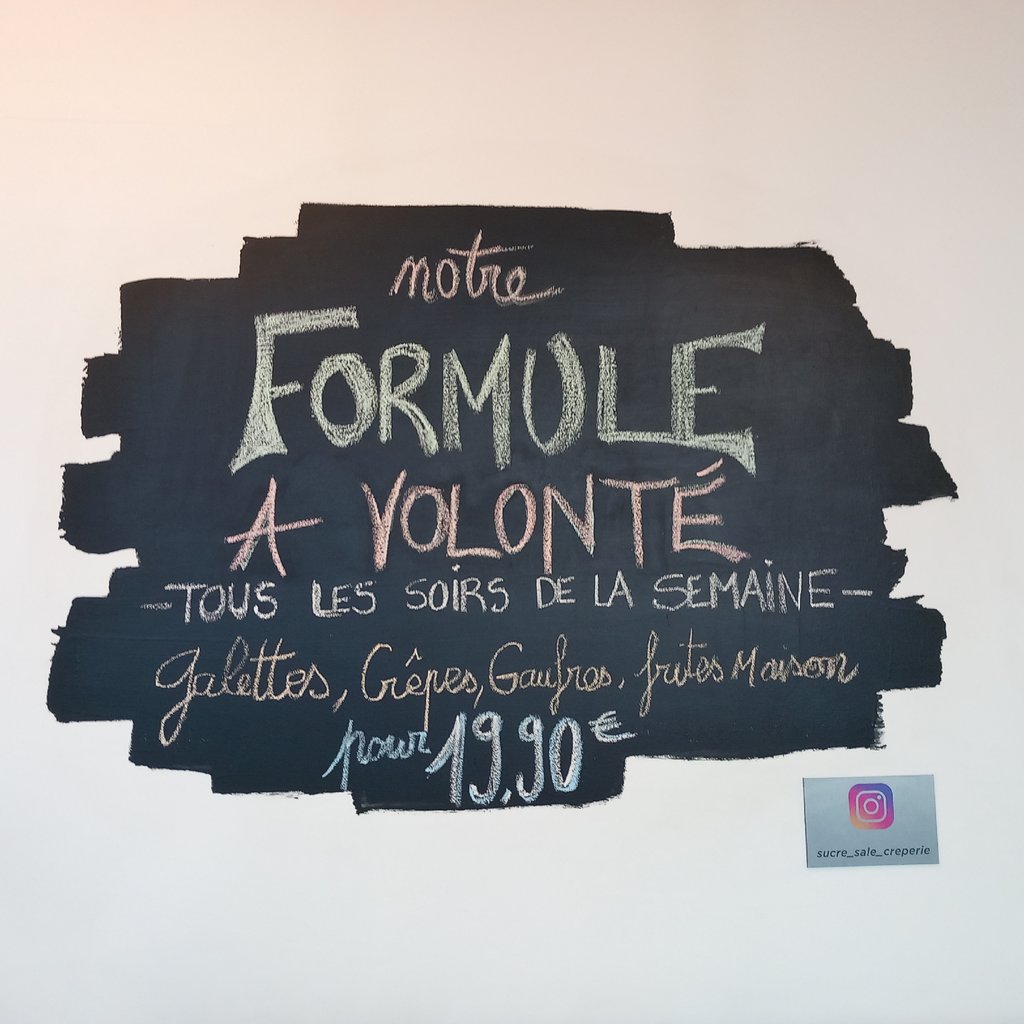 notre
FORMULE
A VOLONTÉ
-TOUS LES SOIRS DE LA SEMAINE-
galettes, Crêpes, Gaufres, frites Maison
pour 19,90€
sucre_sale_creperie